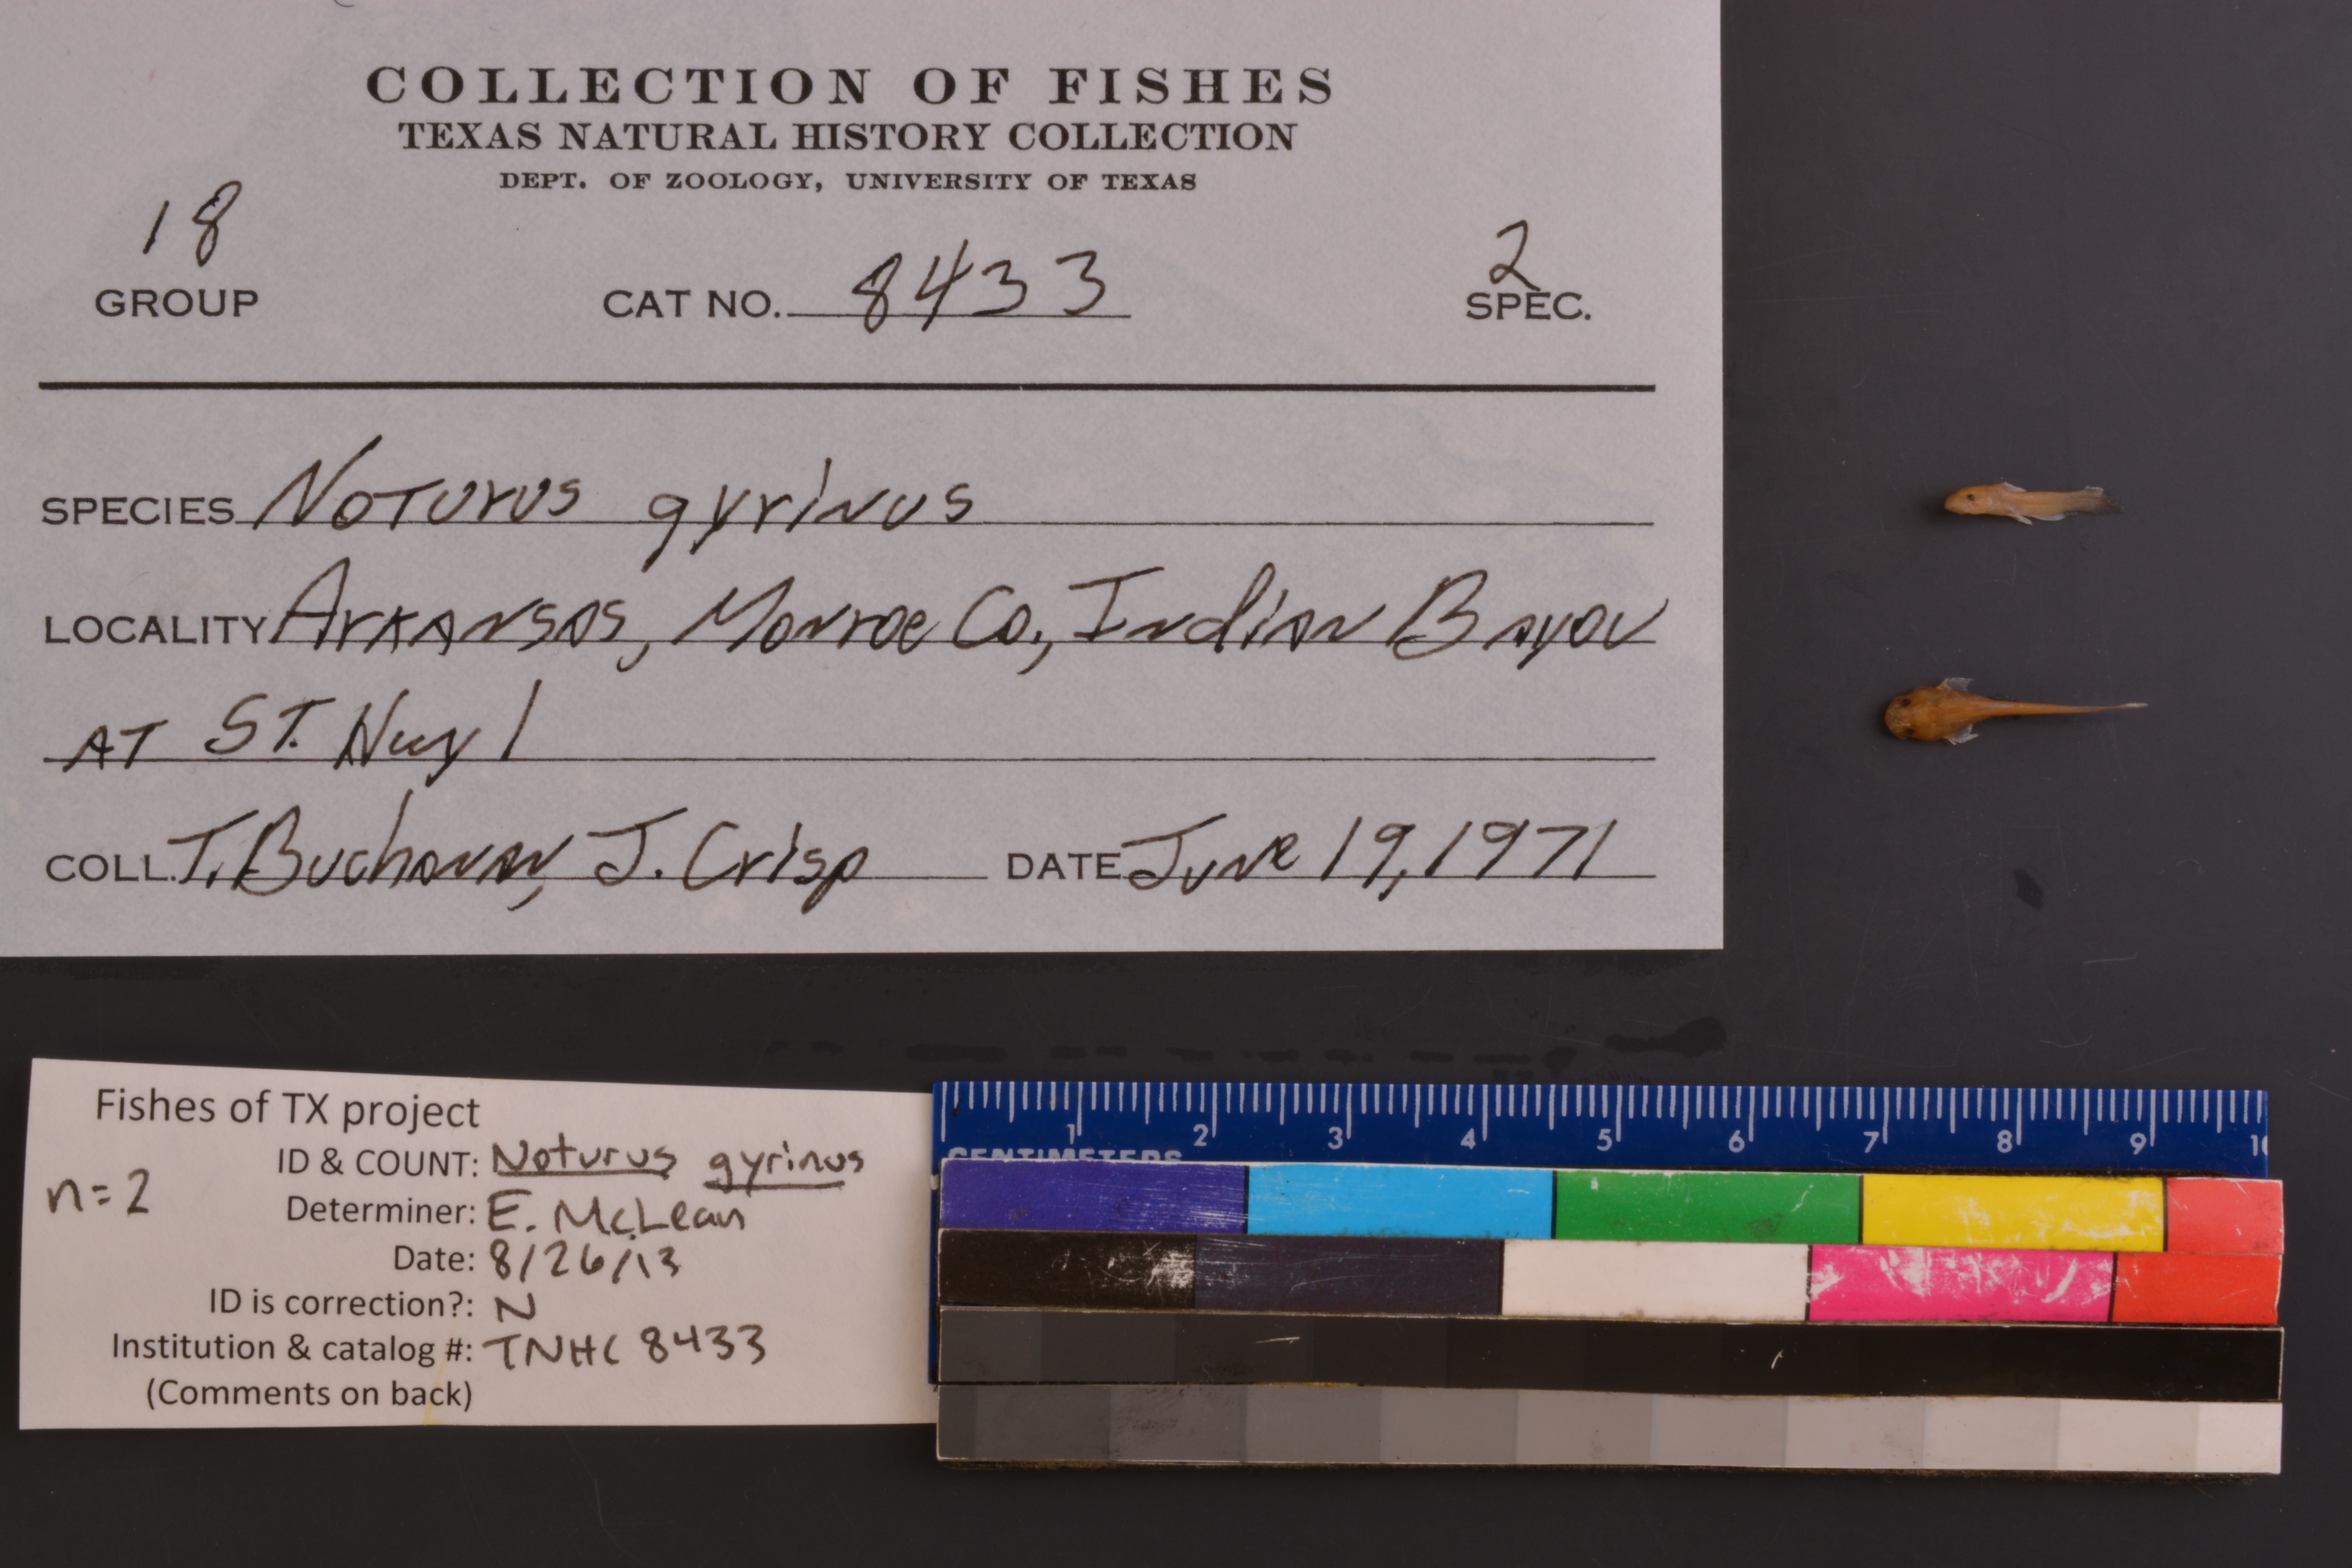 COLLECTION OF FISHES
TEXAS NATURAL HISTORY COLLECTION
DEPT. OF ZOOLOGY, UNIVERSITY OF TEXAS
18 GROUP CAT NO. 8433 2 SPEC.
SPECIES Noturus gyrinus
LOCALITY Arkansas, Monroe Co., Indian Bayou
AT ST. Hwy 1
COLL. T. Buchanan, J. Crisp DATE June 19, 1971
Fishes of TX project
ID & COUNT: Noturus gyrinus
n=2
Determiner: E. McLean
Date: 8/26/13
ID is correction?: N
Institution & catalog #: TNHC 8433
(Comments on back)
1 2 3 4 5 6 7 8 9 10
CENTIMETERS